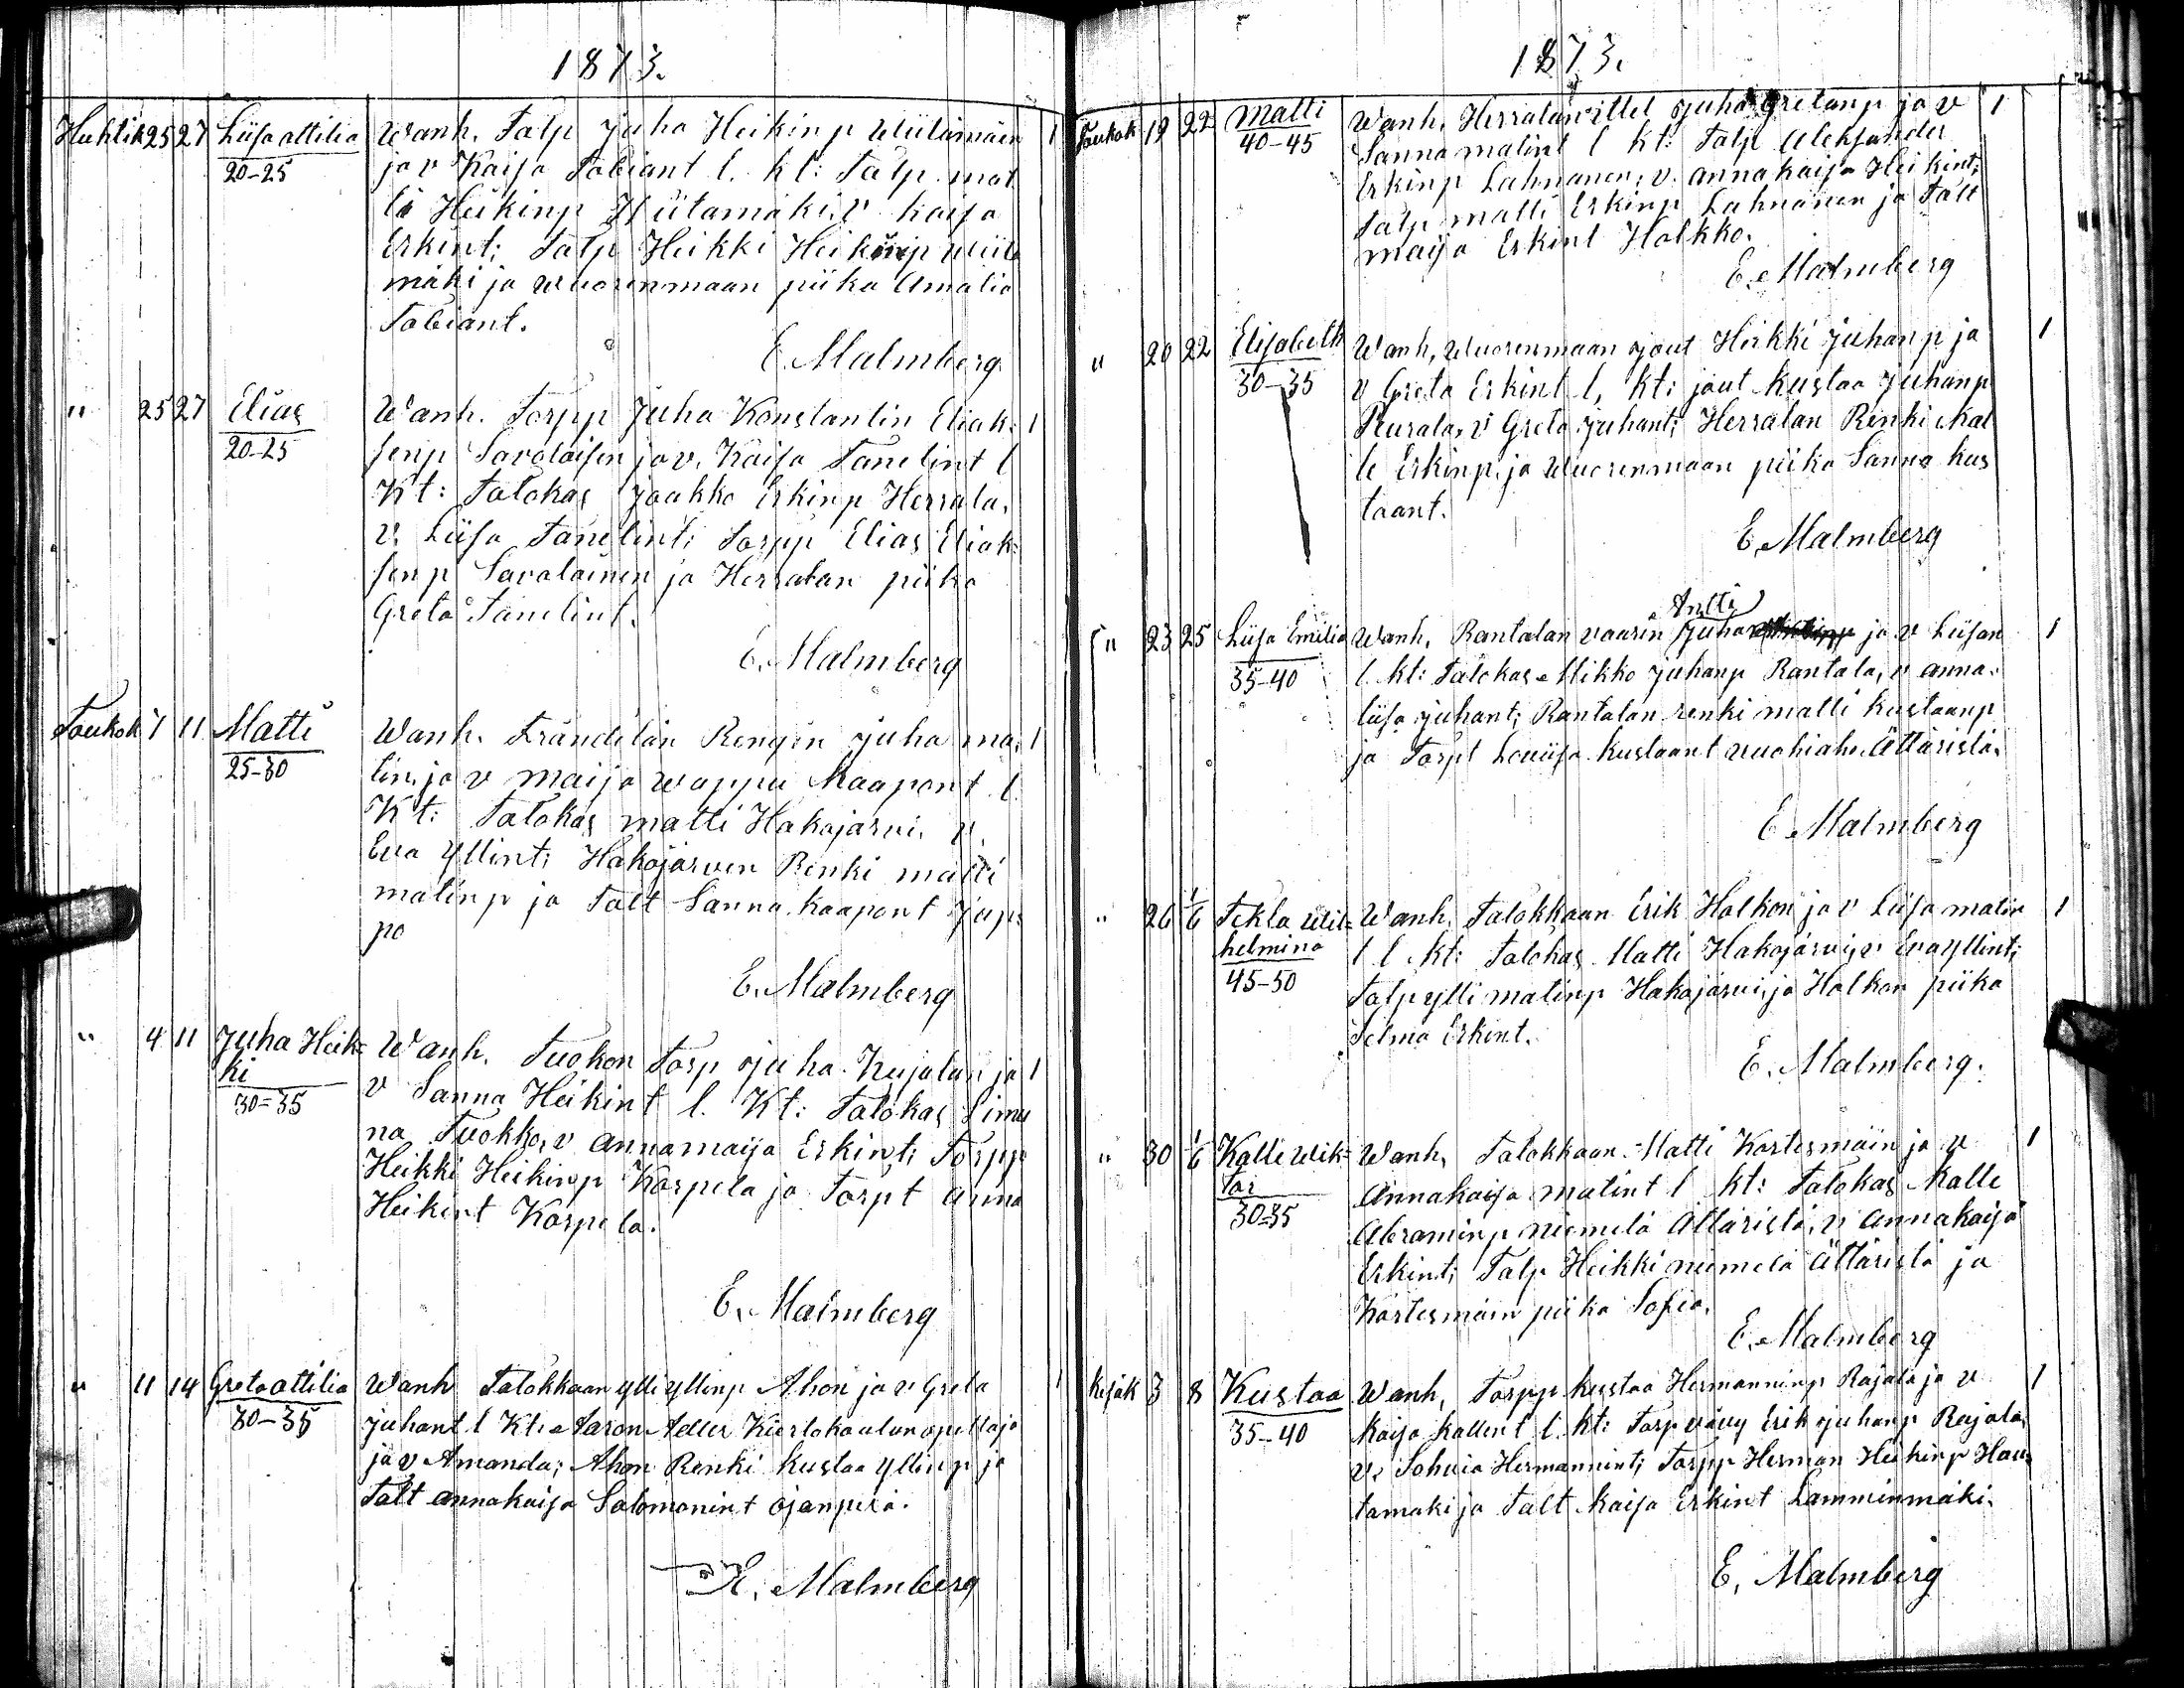 1873.
Huhtik 25 27 Liisa Attilia Wanh. Talp Juha Heikinp Wiitamäen 1
20-25 ja v Kaisa Tobiant l. kt: Talp. mat
ti Heikinp Wiitamäki, v kaisa
Erkint; Talp Heikki Heikinp Wiita
mäki ja Wuorenmaan piika Amalia
Tobiant.
E. Malmberg
" 25 27 Elias Wanh. Torpp Juha Konstantin Eliak= 1
20-25 senp Savolaisen ja v. Kaisa Tanelint l
Kt: Talokas Jaakko Erkinp Herrala,
v. Liisa Tanelint; Torpp Elias Eliak=
senp Savolainen ja Herralan piika
Greta Tanelint.
E. Malmberg
Toukok 7 11 Matti Wanh. Rengin Juha ma= 1
25-30 tin. ja v maija wappu Kaapont l.
Kt: Talokas matti Hakojärvi, v.
Eva Yllint; Hakojärven Renki matti
matinp ja Talt Sanna kaapont Jup=
po
E. Malmberg
" 4 11 Juha Heik= Wanh. Tuokon Torp Juha Kujalan ja 1
ki v Sanna Heikint l. Kt: Talokas Simu
30=35 na Tuokko, v annamaija Erkint; Torpp
Heikki Heikinp Korpela ja Torpt anna
Heikint Korpela.
E. Malmberg
" 11 14 Greta Attilia Wanh Talokkaan ylli yllinp Ahon ja v Greta 1
30-35 Juhant l Kt: Aaron Adler Kiertokoulunopettaja
ja v Amanda; Ahon Renki Kustaa yllinp ja
Talt annakaisa Salomonint Ojanperä.
E. Malmberg
1873.
Toukok 19 22 Matti Wanh. Juha ja v 1
40-45 Sanna matint l kt: Talp Aleksander
Erkinp Lahnanen, v. annakaisa Heikint;
Talp matti Erkinp Lahnanen ja Talt
maija Erkint Holkko.
E. Malmberg
" 20 22 Elisabeth Wanh, Wuorenmaan jout Heikki Juhanp ja 1
30-35 v Greta Erkint l, kt: jout kustaa Juhanp
Peurala, v Greta Juhant; Herralan Renki Kal
le Erkinp. ja Wuorenmaan piika Sanna kus
taant.
E. Malmberg
Antti
" 23 25 Liisa Emilia Wanh, Rantalan vaarin Juhan ja v Liisan 1
35-40 l. kt: Talokas Mikko Juhanp Rantala, v anna=
liisa Juhant; Rantalan renki matti kustaanp
ja Torpt Loviisa kustaant vuohiaho Ättäristä.
E. Malmberg
" 26 1/6 Tekla Wil= Wanh, Talokkaan Erik Holkon ja v Liisa matin 1
helmina t l. kt: Talokas Matti Hakojärvi, v Eva yllint;
45-50 Talp ylli matinp Hakojärvi, ja Holkon piika
Selma Erkint.
E. Malmberg.
" 30 1/6 Kalle Wik= Wanh, Talokkaan Matti Kortesmäin ja v 1
tor Annakaisa matint l kt: Talokas Kalle
30=35 Abraminp niemelä Ättäristä, v Annakaisa
Erkint; Talp Heikki niemelä Ättäristä ja
Kortesmäin piika Sofia.
E. Malmberg
Kesäk 3 8 Kustaa Wanh, Torpp kustaa Hermanninp Rajala ja v 1
35-40 Kaisa Kallent l. kt: Torp vävy Erik Juhanp Rajala,
v. Sohvia Hermannint; Torpp Herman Heikinp Hau=
tamäki ja Talt Kaisa Erkint Lamminmäki.
E. Malmberg